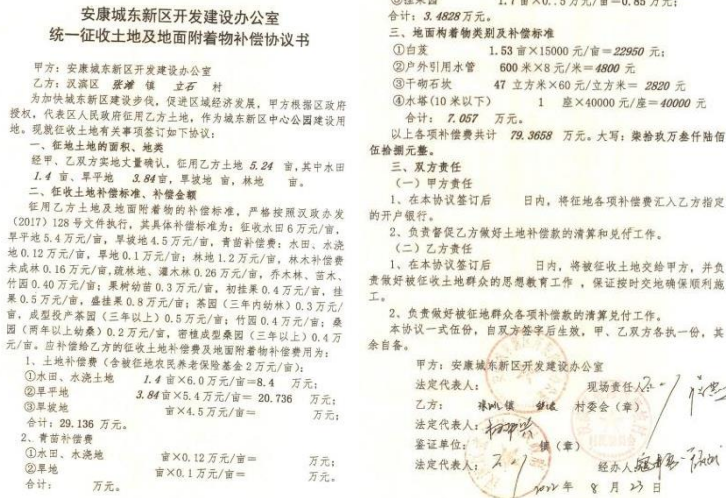 安康城东新区开发建设办公室
统一征收土地及地面附着物补偿协议书
甲方：安康城东新区开发建设办公室
乙方：汉滨区 张滩 镇 立石 村
为加快城东新区建设步伐，促进区域经济发展，甲方根据区政府
授权，代表区人民政府征用乙方土地，作为城东新区中心公园建设用
地。现就征收土地有关事项签订如下协议：
一、征地土地的面积、地类
经甲、乙双方实地丈量确认，征用乙方土地 5.24 亩，其中水田
1.4 亩、旱平地 3.84亩，旱坡地 亩，林地 亩。
二、征收土地补偿标准、补偿金额
征用乙方土地及地面附着物的补偿标准，严格按照汉政办发
（2017）128号文件执行，其具体补偿标准为：征收水田6万元/亩，
旱平地5.4万元/亩，旱坡地4.5万元/亩，青苗补偿费：水田、水浇
地0.12万元/亩，旱地0.1万元/亩；林地1.2万元/亩，林木补偿费
未成林0.16万元/亩，疏林地、灌木林0.26万元/亩，乔木林、苗木、
竹园0.40万元/亩；果树幼苗0.3万元/亩，初挂果0.4万元/亩，挂
果0.5万元/亩，盛挂果0.8万元/亩；茶园（三年内幼林）0.3万元/
亩，成型投产茶园（三年以上）0.5万元/亩；竹园0.4万元/亩；桑
园（两年以上幼桑）0.2万元/亩，密植成型桑园（三年以上）0.4万
元/亩。应补偿给乙方的征收土地补偿费及地面附着物补偿费用为：
1、土地补偿费（含被征地农民养老保险基金2万元/亩）；
①水田、水浇土地 1.4 亩×6.0万元/亩=8.4 万元；
②旱平地 3.84亩×5.4万元/亩= 20.736 万元；
③旱坡地 亩×4.5万元/亩= 万元；
合计：29.136 万元。
2、青苗补偿费
①水田、水浇地 亩×0.12万元/亩= 万元；
②旱地 亩×0.1万元/亩= 万元；
合计： 万元。
合计：3.4828万元。
三、地面构着物类别及补偿标准
①白芨 1.53 亩×15000 元/亩=22950 元；
②户外引用水管 600 米×8元/米=4800 元
③干砌石坎 47 立方米×60元/立方米= 2820 元
④水塔（10米以下） 1 座×40000元/座=40000 元
合计：7.057 万元。
以上各项补偿费共计 79.3658 万元。大写：柒拾玖万叁仟陆佰
伍拾捌元整。
三、双方责任
（一）甲方责任
1、在本协议签订后 日内，将征地各项补偿费汇入乙方指定
的开户银行。
2、负责督促乙方做好土地补偿款的清算和兑付工作。
（二）乙方责任
1、在本协议签订后 日内，将被征收土地交给甲方，并负
责做好被征收土地群众的思想教育工作，保证按时交地确保顺利施
工。
2、负责做好被征地群众各项补偿款的清算兑付工作。
本协议一式伍份，自双方签字后生效，甲、乙双方各执一份，其
余自备。
甲方：安康城东新区开发建设办公室
法定代表人： 现场责任人：
乙方： 张滩 镇 村委会（章）
法定代表人：
签证单位： 镇（章）
法定代表人： 经办人：
2022年 8 月 23 日